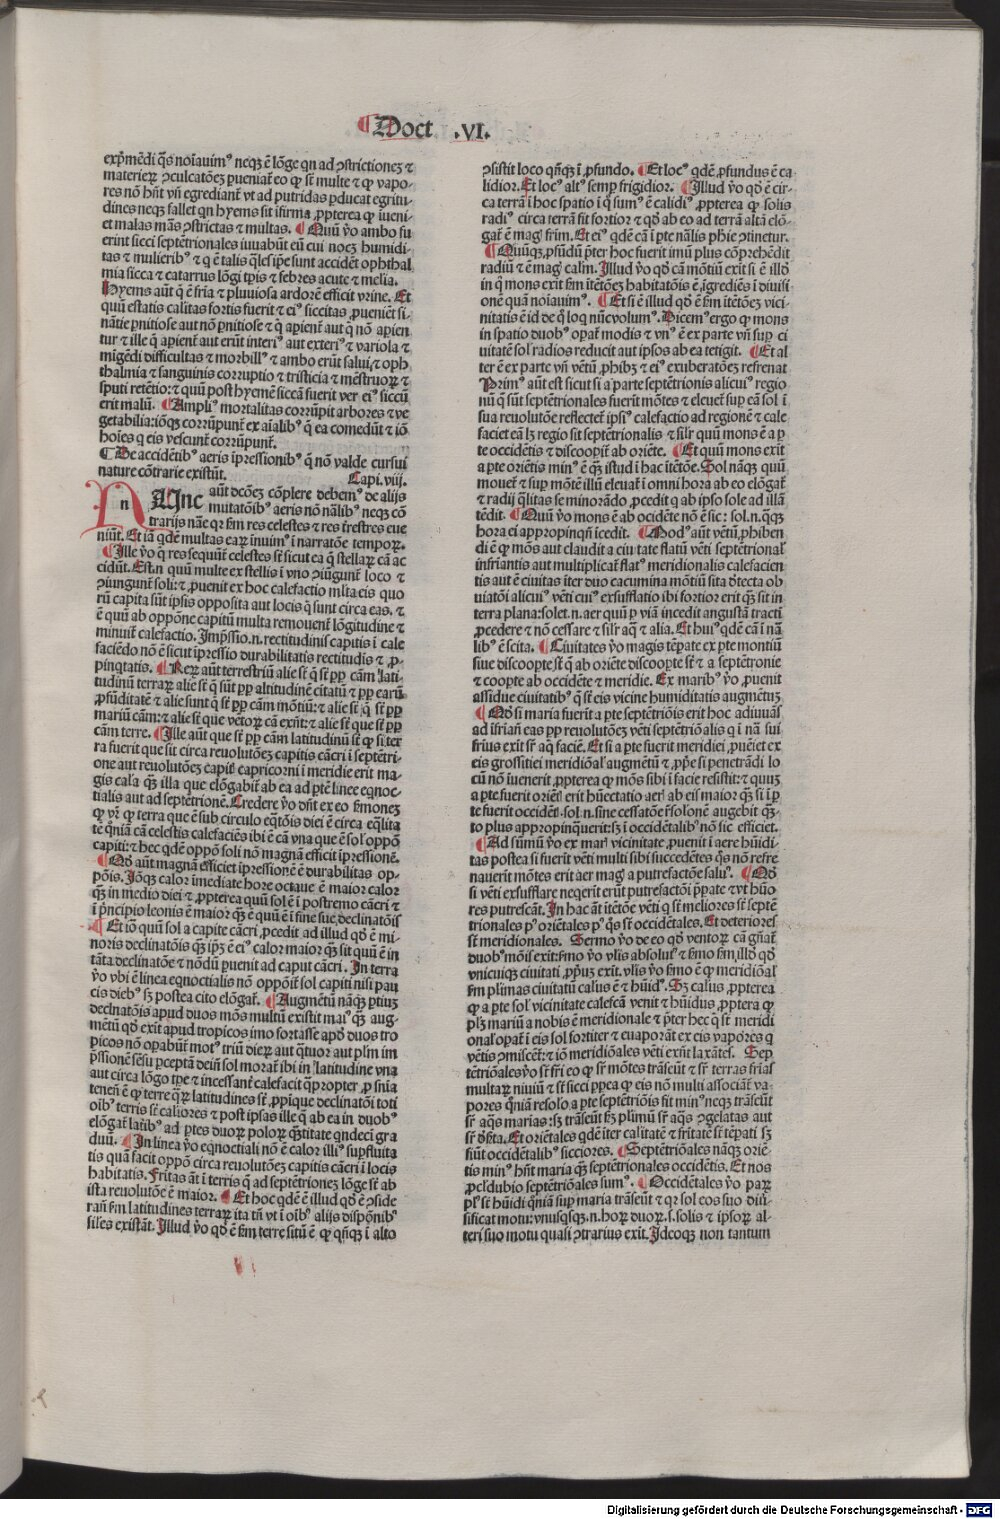 Doct .VI.
exp̄mēdi q̄s noīauimꝰ neqꝫ ē lōge qn ad ↄstrictiōeꝫ ⁊
materieꝝ ↄculcatōeꝫ ꝑueniat̄ eo ꝙ st̄ multe ⁊ ꝙ vapo-
res nō hn̄t vn̄ egrediant̄ vt ad putridas ꝑducat egritu-
dines neqꝫ fallet qn hyems sit īfirma ꝓpterea ꝙ iueni-
et malas mās ↄstrictas ⁊ multas. Quū ꝟo ambo fu
erint sicci septētrionales iuuabūt eū cui noeꝫ humidi-
tas ⁊ mulieribꝰ ⁊ q̄ ē talis q̄lesipe sunt accidēt ophthal
mia sicca ⁊ catarrus lōgi tꝑis ⁊ febres acute ⁊ melia.
Hyems aūt q̄ ē frīa ⁊ pluuiosa ardorē efficit vrine. Et
quū estatis calitas fortis fuerit ⁊ eiꝰ siccitas ꝓueniēt si-
nātie ꝑnitiose aut nō ꝑnitiose ⁊ q̄ apient̄ aut q̄ nō apien
tur ⁊ ille q̄ apient̄ aut erūt interiꝰ aut exteriꝰ ⁊ variola ⁊
mīgēdi difficultas ⁊ morbillꝰ ⁊ ambo erūt salui, ⁊ oph
thalmia ⁊ sanguinis corruptio ⁊ tristicia ⁊ mēstruoꝝ ⁊
sputi retētio: ⁊ quū post hyemē siccā fuerit ver eiꝰ siccū
erit malū. Ampliꝰ mortalitas corrūpit arbores ⁊ ve
getabilia: iōqꝫ corrūpunt̄ ex aīalibꝰ q̄ ea comedūt ⁊ iō
hoīes q eis vescunt̄ corrūpunt̄.
De accidētibꝰ aeris īpressionibꝰ q̄ nō valde cursui
nature cōtrarie existūt. Capi. viij.
n NUnc aūt dcōeꝫ cōplere debemꝰ de alijs
mutatōibꝰ aeris nō nālibꝰ neqꝫ cō
trarijs nāe qꝛ fm res celestes ⁊ res t̄restres eue
niūt. Et iā qdē multas eaꝝ inuimꝰ ī narratōe tempoꝝ.
Ille ꝟo q̄ res sequūt̄ celestes st̄ sicut ea q̄ stellaꝝ cā ac
cidūt. Est.n. quū multe ex stellis ī vno ↄiūgunt̄ loco ⁊
ↄiungunt̄ soli: ⁊ ꝓuenit ex hoc calefactio mlta eis quo
rū capita sūt ipsis opposita aut locis q̄ sunt circa eas. ⁊
ē quū ab oppōne capitū multa remouent̄ lōgitudine ⁊
minuit̄ calefactio. Impssio.n. rectitudinis capitis ī cale
faciēdo nō ē sicut īpressio durabilitatis rectitudīs ⁊ ꝓ-
pinqtatis. Reꝝ aūt terrestriū alie st̄ q̄ st̄ ꝓp cām lati-
tudinū terraꝝ alie st̄ q̄ sūt ꝓp altitudinē citatū ⁊ ꝓp earū
ꝓfūditatē ⁊ alie sunt q̄ st̄ ꝓp cām mōtiū: ⁊ alie st̄ q̄ st̄ ꝓp
mariū cām: ⁊ alie st̄ que vētoꝝ cā exn̄t: ⁊ alie st̄ que st̄ ꝓp
cām terre. Ille aūt que st̄ ꝓp cām latitudinū st̄ ꝙ si ter
ra fuerit que sit circa reuolutōeꝫ capitis cācri ī septētri-
one aut reuolutōeꝫ capitꝭ capricorni ī meridie erit ma-
gis cala qꝫ illa que elōgabit̄ ab ea ad ꝑtē līnee eqnoc-
tialis aut ad septētrionē. Credere ꝟo dn̄t ex eo fmoneꝫ
ꝙ vꝛ ꝙ terra que ē sub circulo eq̄tōis diei ē circa eq̄lita
tē qn̄iā cā celestis calefaciēs ibi ē cā vna que ē sol oppō
capiti: ⁊ hec qdē oppō soli nō magnā efficit īpressionē.
Qd̄ aūt magnā efficiet īpressionē ē durabilitas op-
pōis. Iōqꝫ calor īmediate hore octaue ē maior calor
qꝫ in medio diei ⁊ ꝓpterea quū sol ē ī postremo cācri ⁊
ī pncipio leonis ē maior qꝫ ē quū ē ī fine sue declinatōis
Et iō quū sol a capite cācri ꝓcedit ad illud qd̄ ē mi-
noris declinatōis qꝫ ipꝫ ē eiꝰ calor maior qꝫ sit quū ē in
tāta declinatōe ⁊ nōdū ꝑuenit ad caput cācri. In terra
ꝟo vbi ē līnea eqnoctialis nō oppōit̄ sol capiti nisi pau
cis diebꝰ sꝫ postea cito elōgat̄. Augmētū nāqꝫ ꝑtiuꝫ
declnatōis apud duos mōs multū existit maiꝰ qꝫ aug-
mētū qd̄ exit apud tropicos imo fortasse apd̄ duos tro
picos nō opabūt̄ motꝰ triū dieꝝ aut q̄tuor aut plīm im
pssionē sēsu ꝑceptā deīn̄ sol morat̄ ibi in latitudine vna
aut circa lōgo tꝑe ⁊ incessant̄ calefacit qꝓpter ꝓ sn̄ia
tenen̄ ē ꝙ terre q̄ꝝ latitudines st̄ ꝓpīque declinatōi toti
oībꝰ terris st̄ caliores ⁊ post ipsas ille q̄ ab ea in duobꝰ
elōgat̄ laterībꝰ ad ptes duoꝝ poloꝝ q̄titate qndeci gra
duū. In līnea ꝟo eqnoctiali nō ē calor illiꝰ supfluita
tis quā facit oppō circa reuolutōeꝫ capitis cācri ī locis
habitatis. Frītas āt ī terris q̄ ad septētrioneꝫ lōge st̄ ab
ista reuolutōe ē maior. Et hoc qdē ē illud qd̄ ē ↄside
ran̄ fm latitudines terraꝝ ita tn̄ vt ī oībꝰ alijs dispōnibꝰ
siles existāt. Illud ꝟo qd̄ ē fm terre sitū ē ꝙ qn̄qꝫ ī alto
ↄsistit loco qn̄qꝫ ī ꝓfundo. Et locꝰ qdē ꝓfundus ē ca
lidior. Et locꝰ altꝰ semp frigidior. Illud ꝟo qd̄ ē cir-
ca terrā ī hoc spatio ī q̄ sumꝰ ē calidiꝰ ꝓpterea ꝙ solis
radiꝰ circa terrā fit fortior ⁊ qd̄ ab eo ad terrā altā elō-
gat̄ ē magꝭ frīm. Et eiꝰ qdē cā ī pte nālis phie ↄtinetur.
Quūqꝫ ꝓfūdū pter hoc fuerit imū plus cōprehēdit
radiū ⁊ ē magꝭ calm. Illud ꝟo qd̄ cā mōtiū exit si ē illd̄
in q̄ mons exit fm ītētōeꝫ habitatōis ē īgrediēs ī diuisi
onē quā noīauimꝰ. Et si ē illud qd̄ ē fm ītētōeꝫ vici-
nitatis ē id de q̄ loq nūc volumꝰ. Dicemꝰ ergo ꝙ mons
in spatio duobꝰ opat̄ modis ⁊ vnꝰ ē ex parte vn̄ sup ci
uitatē sol radios reducit aut ipsos ab ea tetigit. Et al
ter ē ex parte vn̄ vētū ꝓhibꝫ ⁊ eiꝰ exuberatōeꝫ refrenat
Primꝰ aūt est sicut si a parte septētrionis alicuiꝰ regio
nū q̄ sūt septētrionales fuerit mōtes ⁊ eleuet̄ sup eā sol ī
sua reuolutōe reflectet̄ ipsiꝰ calefactio ad regionē ⁊ cale
faciet eā lꝫ regio sit septētrionalis ⁊ silr quū mons ē a p
te occidētis ⁊ discoopit̄ ab oriēte. Et quū mons exit
a pte oriētis minꝰ ē qꝫ istud ī hac ītētōe. Sol nāqꝫ quū
mouet̄ sup mōtē illū eleuat̄ ī omni hora ab eo elōgat̄
⁊ radij q̄litas se minorādo ꝓcedit q ab ipso sole ad illā
tēdit. Quū ꝟo mons ē ab ocidēte nō ē sic: sol.n. q̄qꝫ
hora ei appropinqn̄ īcedit. Modꝰ aūt vētū ꝓhiben
di ē ꝙ mōs aut claudit a ciuitate flatū vēti septētrional
infriantis aut multiplicat̄ flatꝰ meridionalis calefacien
tis aut ē ciuitas īter duo cacumina mōtiū sita detecta ob
uiatōi alicuiꝰ vēti cuiꝰ exsufflatio ibi fortior erit qꝫ sit in
terra plana: solet.n. aer quū p viā incedit angustā tracti
ꝓcedere ⁊ nō cessare ⁊ silr aq̄ ⁊ alia. Et huiꝰ qdē cā ī nā
libꝰ ē scita. Ciuitates ꝟo magis tēpate ex pte montiū
siue discoopte st̄ q̄ ab oriēte discoopte st̄ ⁊ a septētrione
⁊ coopte ab occidēte ⁊ meridie. Ex maribꝰ ꝟo ꝓuenit
assidue ciuitatibꝰ q̄ st̄ eis vicine humiditatis augmētuꝫ
Qd̄ si maria fuerit a pte septētriōis erit hoc adiuuās
ad īfriān̄ eas ꝓp reuolutōeꝫ vēti septētriōalis q ī nā sui
frius exit sr̄ aq̄ faciē. Et si a pte fuerit meridiei ꝓuēiet ex
eis grossitiei meridiōal augmētū ⁊ ꝓpe si penetrādi lo
cū nō iuenerit ꝓpterea ꝙ mōs sibi ī facie resistit: ⁊ quuꝫ
a pte fuerit oriēt̄ erit hūectatio aeri ab eis maior qꝫ si ī p
te fuerit occidēt̄. sol.n. sine cessatōe resolonē augebit qꝫ-
to plus appropinq̄uerit: sꝫ ī occidētalibꝰ nō sic efficiet.
Ad sūmū ꝟo ex marꝭ vicinitate ꝓuenit ī aere hūidi-
tas postea si fuerit vēti multi sibi succedētes q̄s nō refre
nauerit mōtes erit aer magꝭ a putrefactōe saluꝰ. Qd̄
si vēti exsufflare neqerit erūt putrefactōi ppate ⁊ vt hūo
res putrescāt. In hac āt ītētōe vēti q̄ st̄ meliores st̄ septē
trionales pꝰ oriētales pꝰ q̄s st̄ occidētales. Et deteriores
st̄ meridionales. Sermo ꝟo de eo qd̄ ventoꝝ cā gn̄at̄
duobꝰ mōis exit: fmo ꝟo vlis absolutꝰ ⁊ fmo fm illd̄ qd̄
vnicuiqꝫ ciuitati ꝓpuꝫ exit. vlis ꝟo fmo ē ꝙ meridiōal
fm plimas ciuitatū calius ē ⁊ hūidꝰ. Sꝫ calius ꝓpterea
ꝙ a pte sol vicinitate calefcā venit ⁊ hūidus ꝓptera ꝙ
plꝫ mariū a nobis ē meridionale ⁊ pter hec q̄ st̄ meridi
onal opat̄ ī eis sol fortiter ⁊ euaporāt ex eis vapores q
vētis ↄmiscēt̄: ⁊ iō meridiōales vēti exn̄t laxātes. Sep
tētriōales ꝟo st̄ fri eo ꝙ sr̄ mōtes trāseūt ⁊ sr̄ terras frīas
multaꝝ niuiū ⁊ st̄ sicci ppea ꝙ eis nō multi associat̄ va-
pores qn̄iā resolō.a pte septētriōis fit minꝰ neqꝫ trāseūt
sr̄ aq̄s marias: sꝫ trāseūt sꝫ plīmū sr̄ aq̄s ↄgelatas aut
sr̄ deserta. Et oriētales qdē īter calitatē ⁊ frītatē st̄ tēpati sꝫ
siūt occidētalibꝰ sicciores. Septētriōales nāqꝫ oriē-
tis minꝰ hn̄t maria qꝫ septētrionales occidētis. Et nos
ꝓcldubio septētriōales sumꝰ. Occidētales ꝟo paꝝ
plꝰ st̄ hūidi qn̄iā sup maria trāseūt ⁊ qꝛ sol eos suo diū
sificat motu: vnusqsqꝫ.n. hoꝝ duoꝝ.s. solis ⁊ ipsoꝝ al-
teri suo motu quasi ↄtrarius exit. Ideoqꝫ non tantum
Digitalisierung gefördert durch die Deutsche Forschungsgemeinschaft - DFG